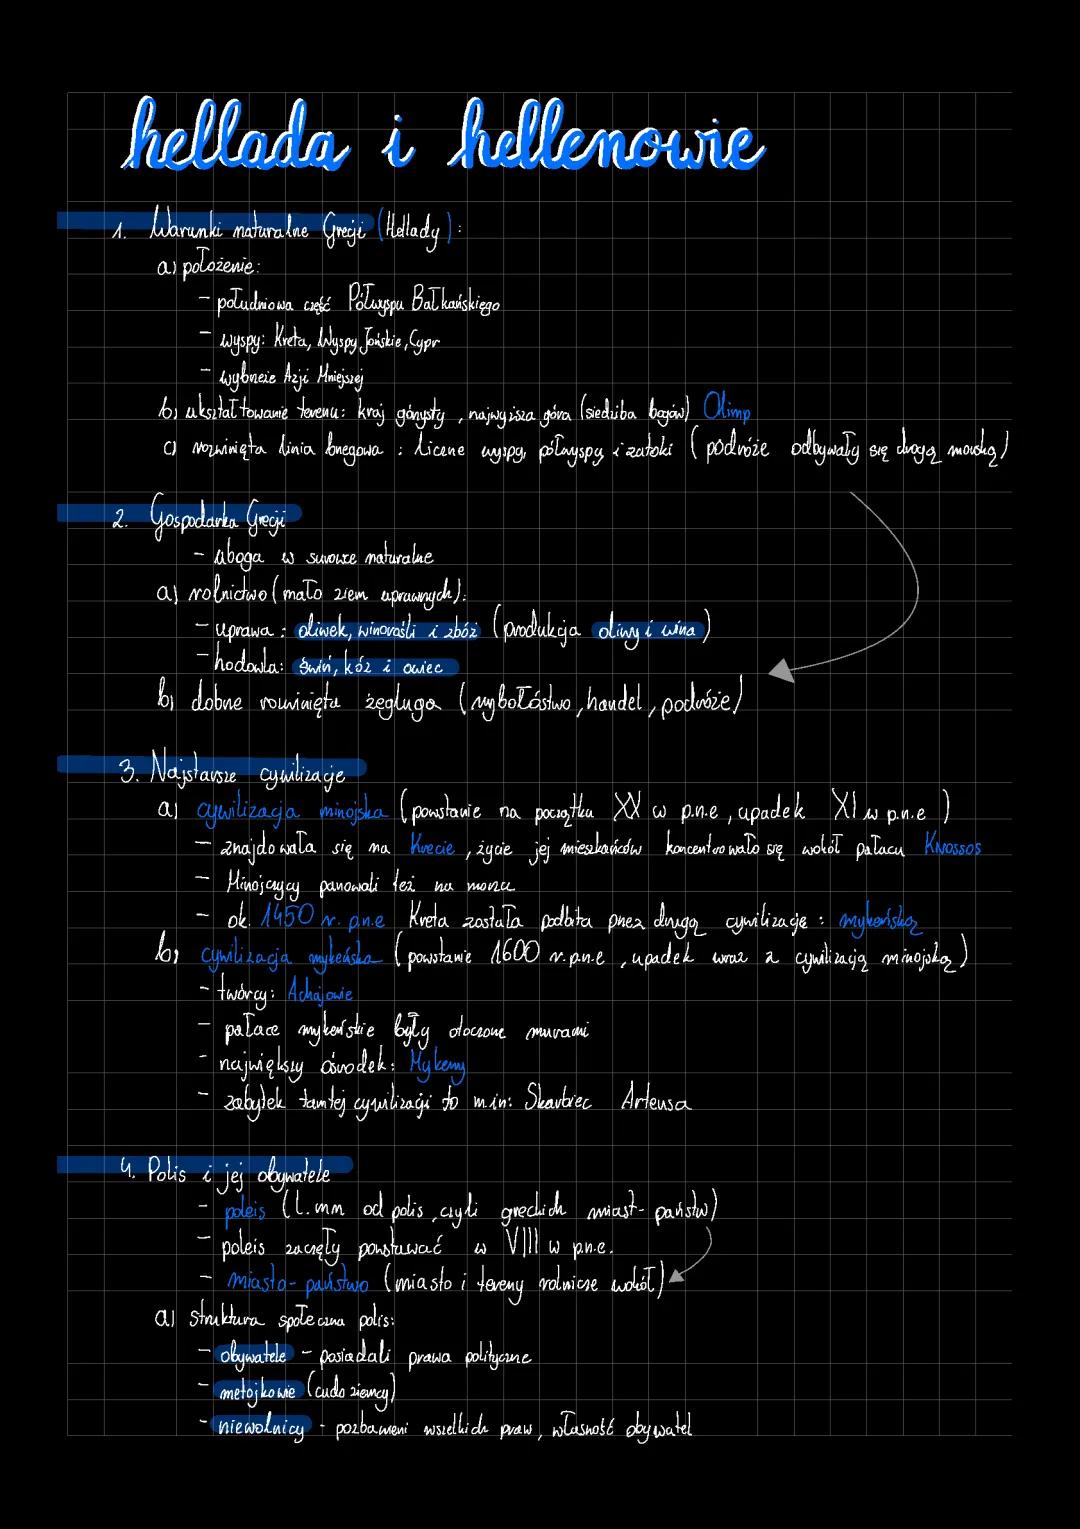 hellada i hellenowie
1. Warunki naturalne Grecji (Hellady):
a) położenie:
- południowa część Półwyspu Bałkańskiego
- wyspy: Kreta, Wyspy Jońskie, Cypr
- wybrzeże Azji Mniejszej
b) ukształtowanie terenu: kraj górzysty, najwyższa góra (siedziba bogów) Olimp
c) rozwinięta linia brzegowa: liczne wyspy, półwyspy i zatoki (podróże odbywały się drogą morską)
2. Gospodarka Grecji
- uboga w surowce naturalne
a) rolnictwo (mało ziem uprawnych):
- uprawa: oliwek, winorośli i zbóż (produkcja oliwy i wina)
- hodowla: świń, kóz i owiec
b) dobrze rozwinięta żegluga (rybołóstwo, handel, podróże)
3. Najstarsze cywilizacje
a) cywilizacja minojska (powstanie na początku XX w p.n.e, upadek XI w p.n.e)
- znajdowała się na Krecie, życie jej mieszkańców koncentrowało się wokół pałacu Knossos
- Minojczycy panowali też na morzu
- ok. 1450 r. p.n.e Kreta została podbita przez drugą cywilizację: mykeńską
b) cywilizacja mykeńska (powstanie 1600 r. p.n.e, upadek wraz z cywilizacją minojską)
- twórcy: Achajowie
- pałace mykeńskie były otoczone murami
- największy ośrodek: Mykeny
- zabytek tamtej cywilizacji to m.in: Skarbiec Arteusa
4. Polis i jej obywatele
- poleis (l. mn od polis, czyli greckich miast-państw)
- poleis zaczęły powstawać w VIII w p.n.e.
- miasto-państwo (miasto i tereny rolnicze wokół)
a) struktura społeczna polis:
- obywatele - posiadali prawa polityczne
- metojkowie (cudoziemcy)
- niewolnicy - pozbawieni wszelkich praw, własność obywatel